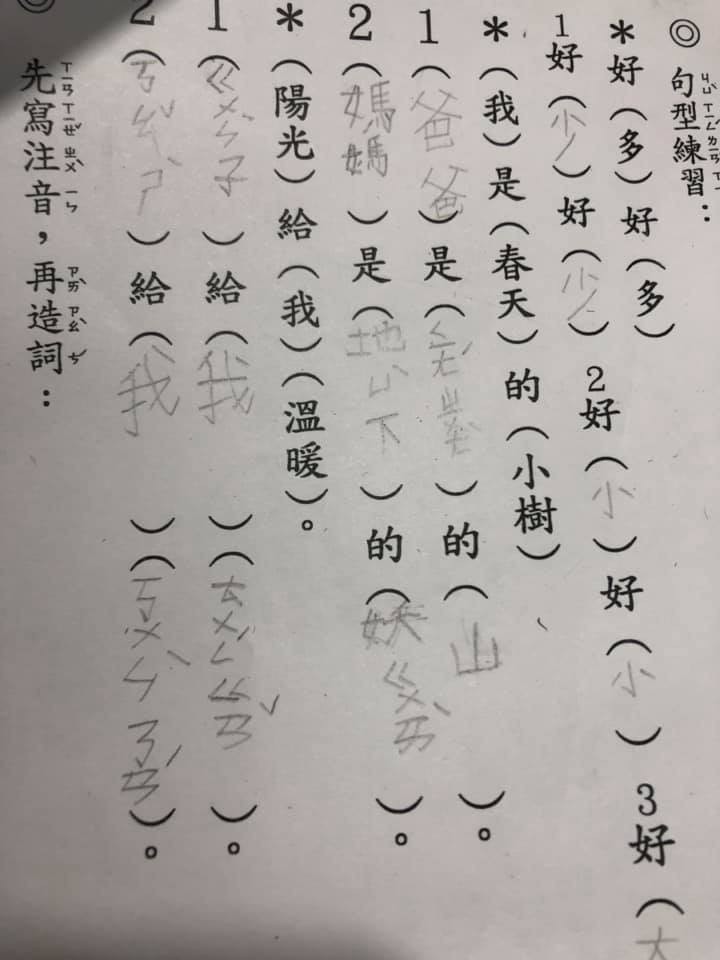 ◎句型練習：
*好（多）好（多）
1好（少）好（少） 2好（小）好（小） 3好（大
*（我）是（春天）的（小樹）
1（爸爸）是（ㄑㄧㄤˊㄓㄨㄤˋ）的（山）。
2（媽媽）是（地ㄩˋ下）的（妖ㄍㄨㄞˋ）。
*（陽光）給（我）（溫暖）。
1（ㄍㄨㄣˋ子）給（我）（ㄊㄨㄥˋㄍㄢˇ）。
2（ㄎㄠˇㄕˋ）給（我）（ㄎㄨㄣˋㄋㄢˊ）。
先寫注音，再造詞：